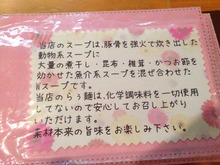 当店のスープは、豚骨を強火で炊き出した
動物系スープに
大量の煮干し・昆布・椎茸・かつお節を
効かせた魚介系スープを混ぜ合わせた
Wスープです。
当店のらぅ麺は、化学調味料を一切使用
してないので安心してお召し上がり
いただけます。
素材本来の旨味をお楽しみ下さい。